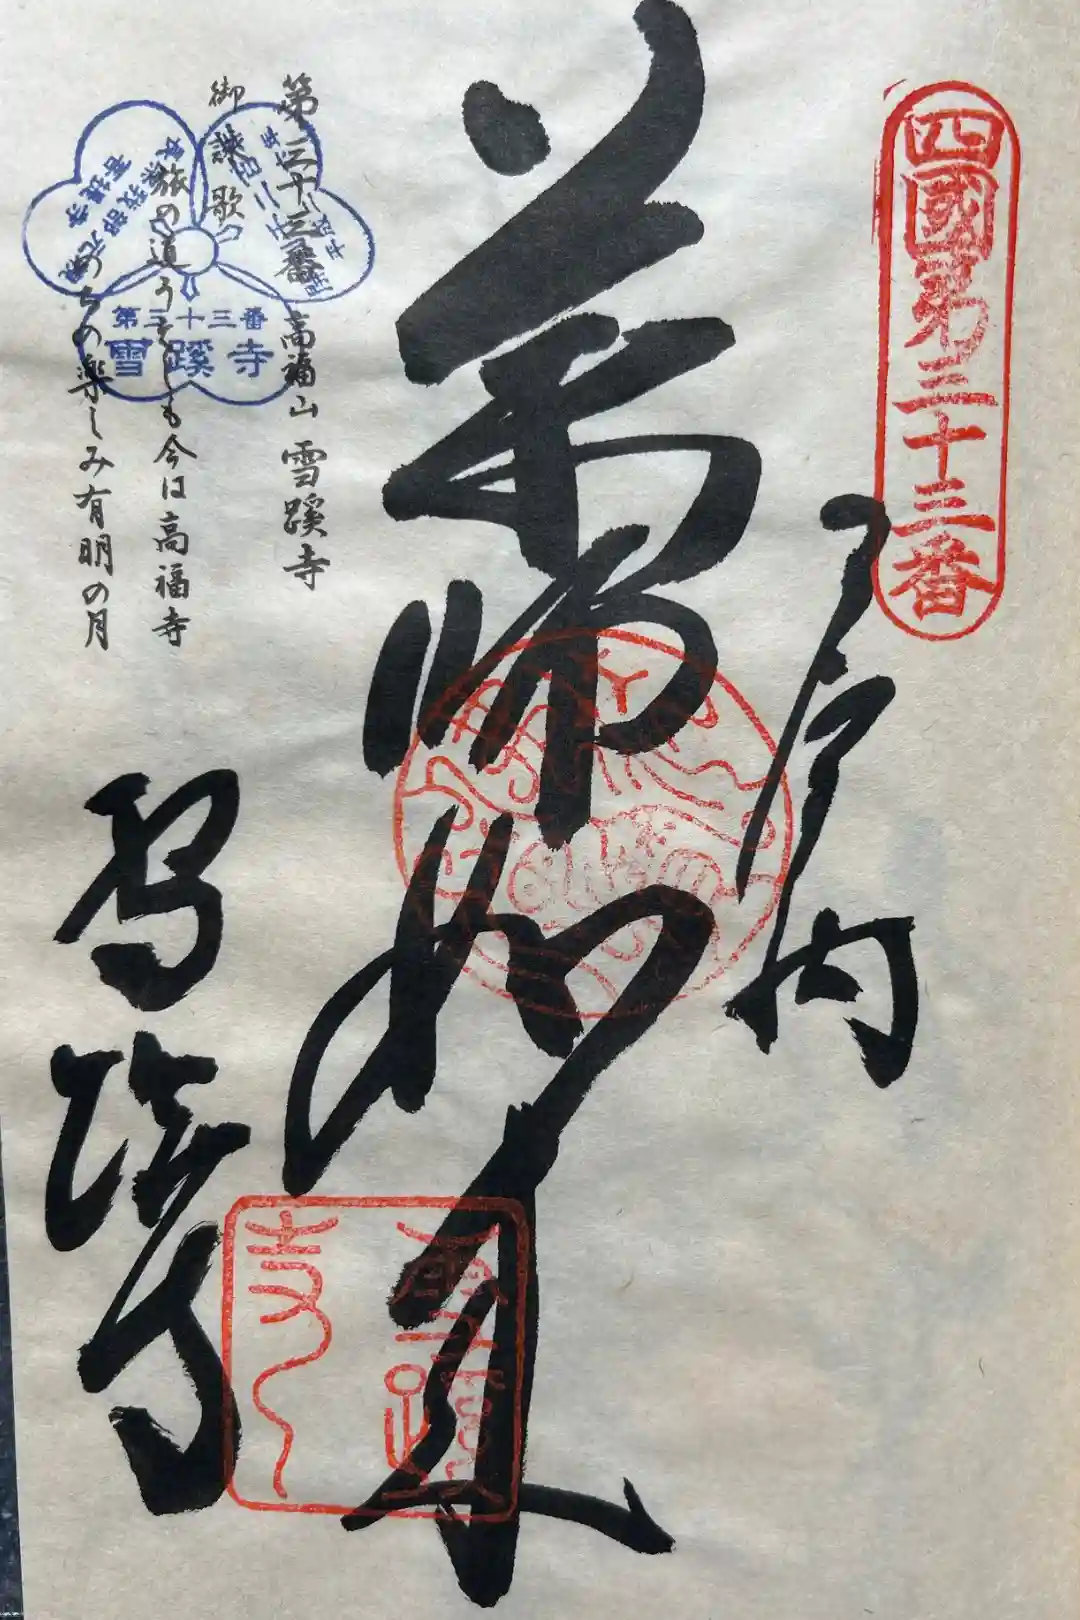 四國第三十三番
奉納
薬師如来
雪蹊寺
第三十三番 高福山 雪蹊寺
御詠歌
旅の道うえしも今は高福寺
のちの楽しみ有明の月
長曽我部元親
菩提寺
第三十三番
雪蹊寺
雪蹊
寺